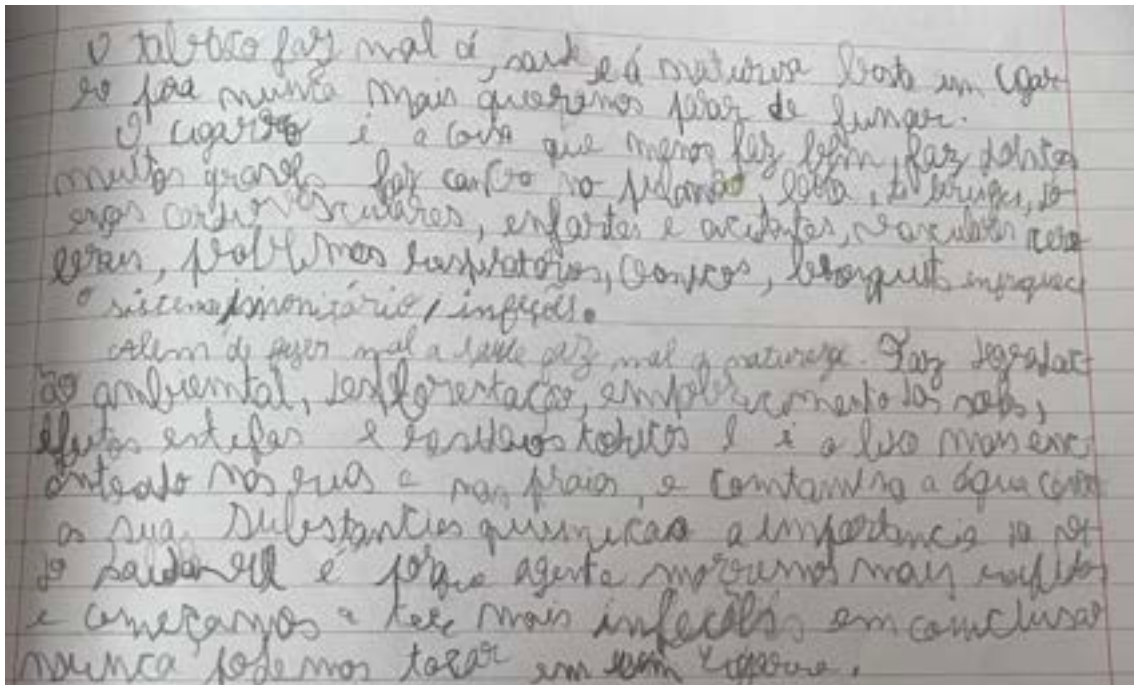 O tabaco faz mal á, saude e á naturesa basta um cigar
ro para nunca mais queremos parar de fumar.
O cigarro é a coisa que menos fez bem, faz
muitos graves faz cancro no pulmão, do
enças cardiovasculares, enfartes e acidentes, vasculares cere
brais, problemas respiratorios, cronicos, enfraquece
o sistema imonitário, infeções.
Além de fazer mal a saude faz mal a natureza. Faz degradac
ão ambiental, desflorestação, empobrecimento dos solos,
efeitos estufas e residuos toxicos e é o lixo mais enc
ontrado nas ruas e nas praias, e contamina a água com
as suas substancias quimicas a importancia do
saudavel é porque agente morremos mais rapido
e começamos a ter mais infecões em conclusao
nunca podemos tocar em um cigarro.